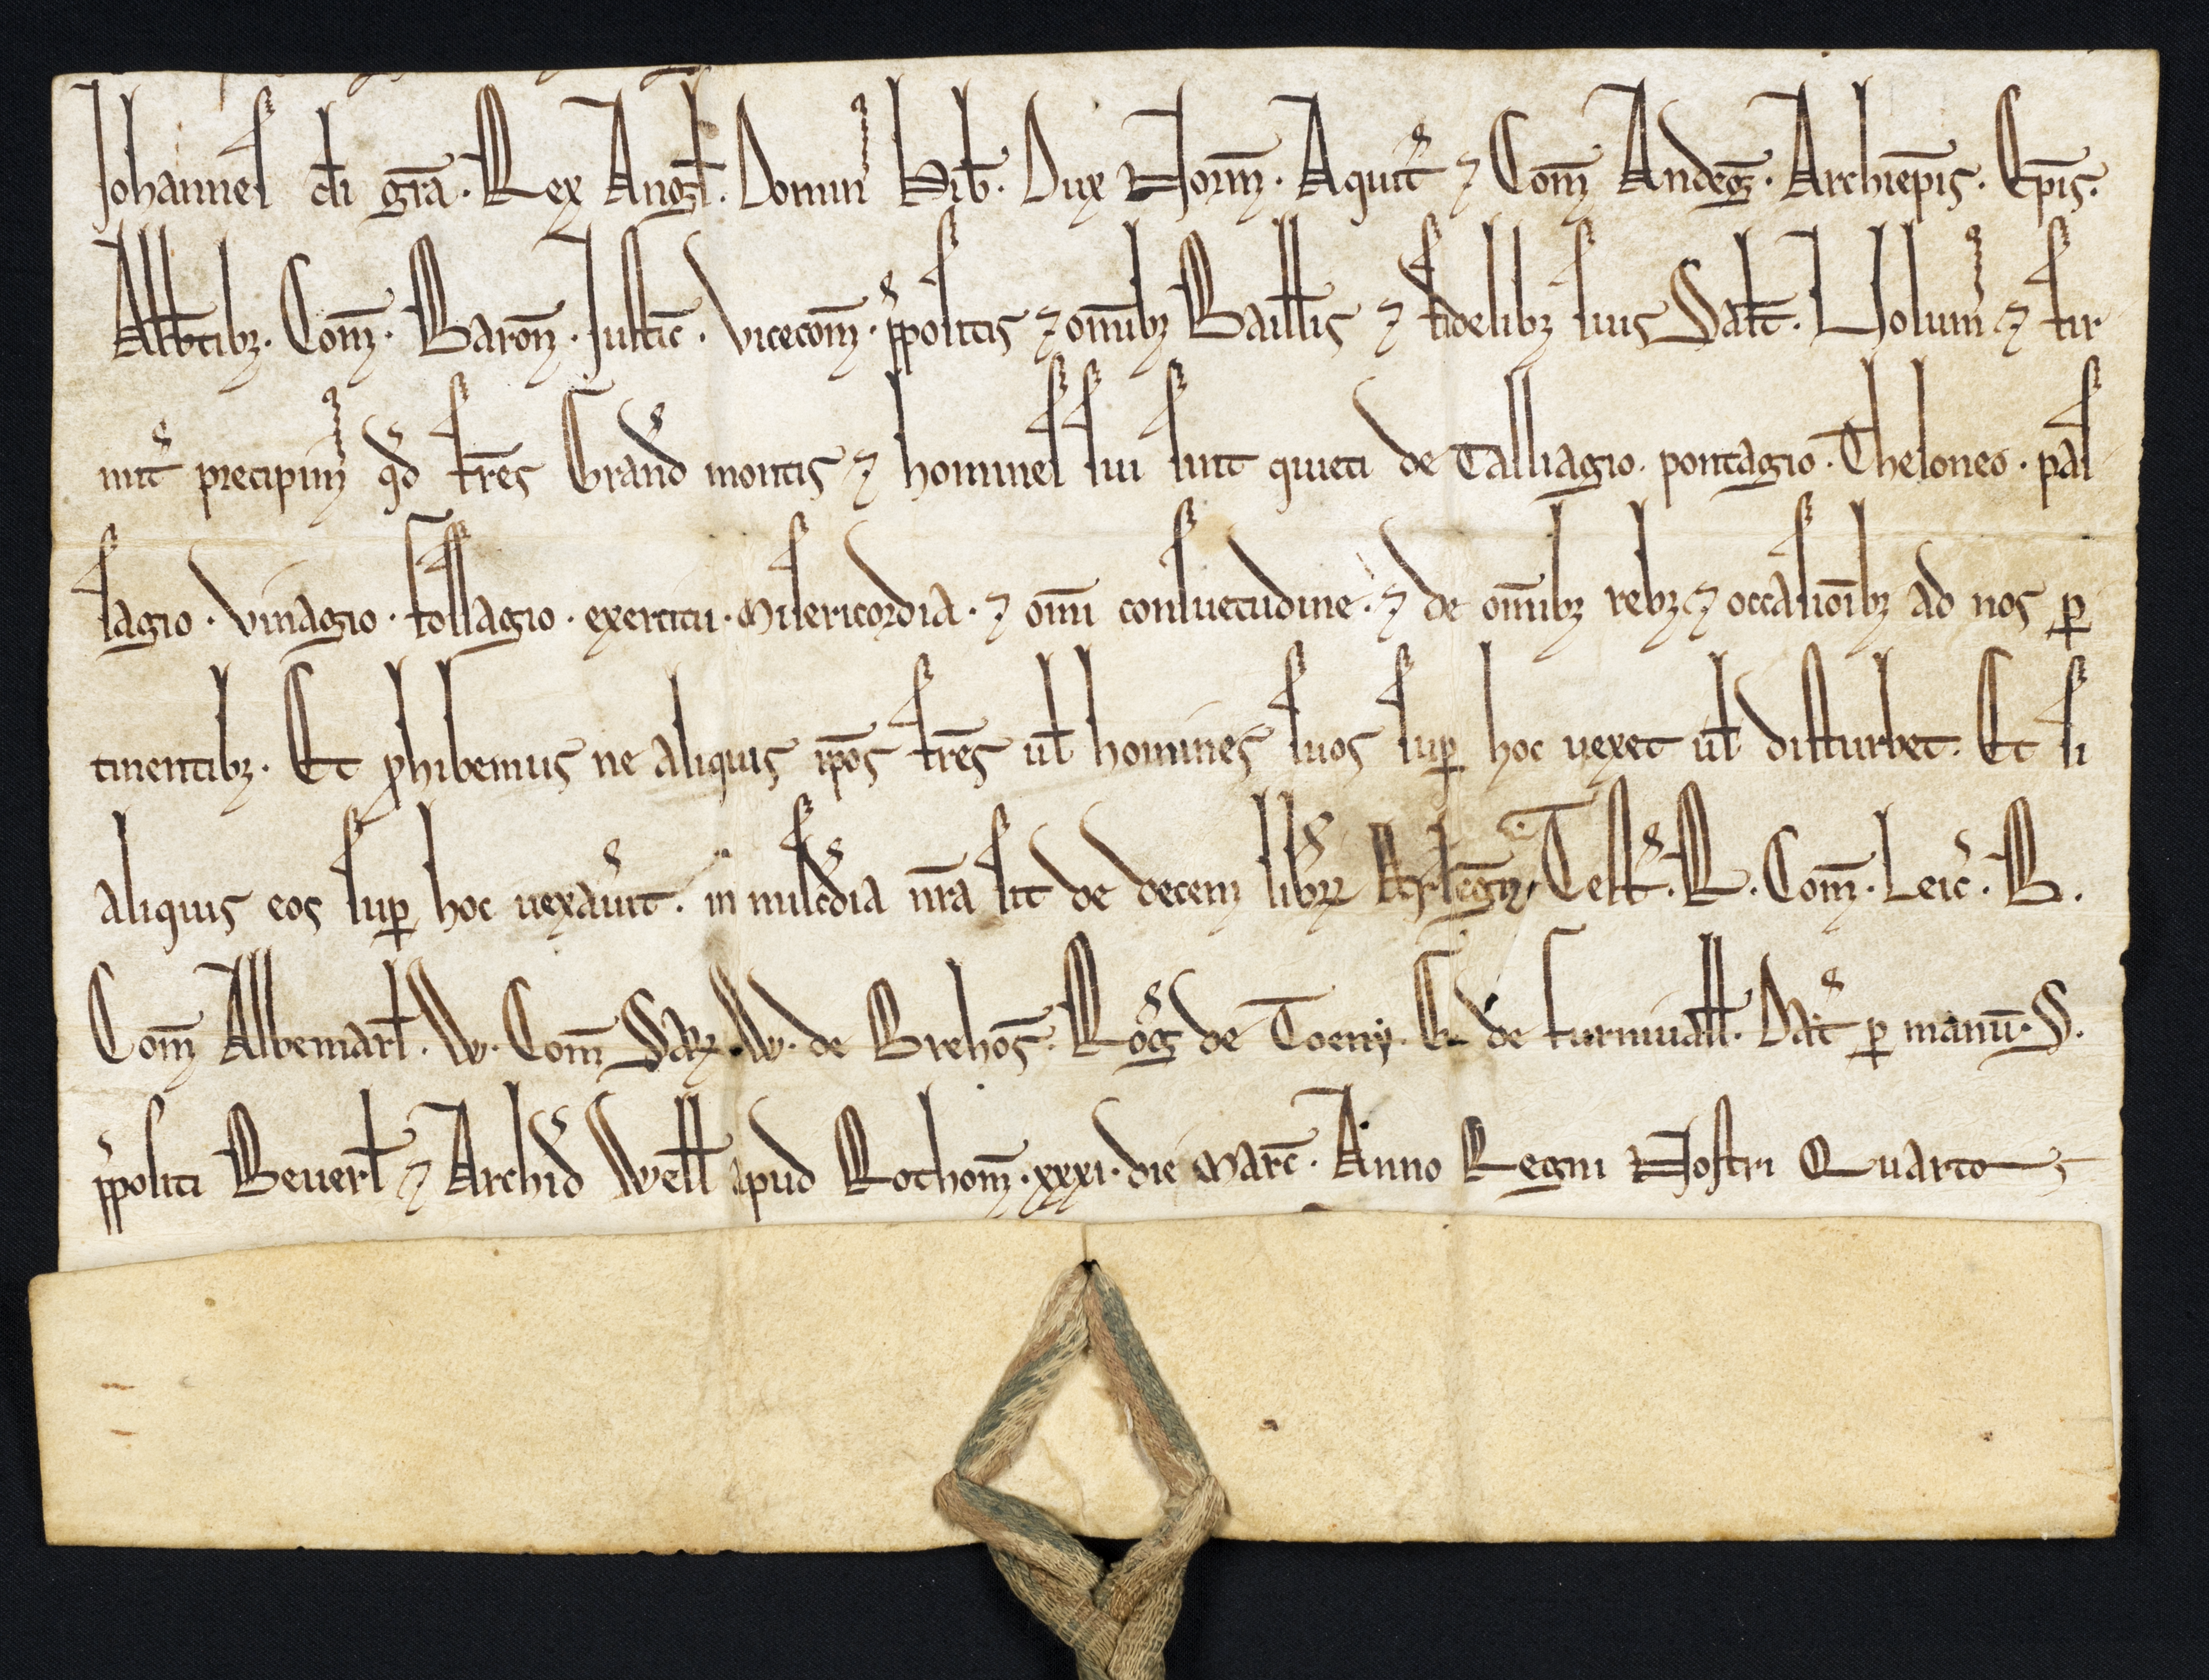 Johannes di gra. Rex Angl. Domin Hib. Dux Norm. Aquit ⁊ Com Andeg. Archiepis. Epis.
Abbtibz. Com. Baron. Justic. Vicecom. ppositis ⁊ omibz Baillis ⁊ fidelibz suis Salt. Volum ⁊ fir
mit precipim qd fres Grand montis ⁊ homines sui sint quieti de Talliagio. pontagio. Theloneo. pas
sagio. vinagio. fossagio. exercitu. Misericordia. ⁊ omi consuetudine. ⁊ de omibz rebz ⁊ occasioibz ad nos p
tinentibz. Et phibemus ne aliquis ipos fres ul homines suos sup hoc uexet ul disturbet. Et si
aliquis eos sup hoc uexauit. in miscdia nra sit de decem libr Test. R. Com. Leic. B.
Com Albemarl. W. Com Sar. W. de Brehos. Rog de Toeny. G. de furniuall. Dat p manu. S.
ppositi Beuerl ⁊ Archid Well apud Rothom. xxxi. die Marc. Anno Regni Nostri Quarto